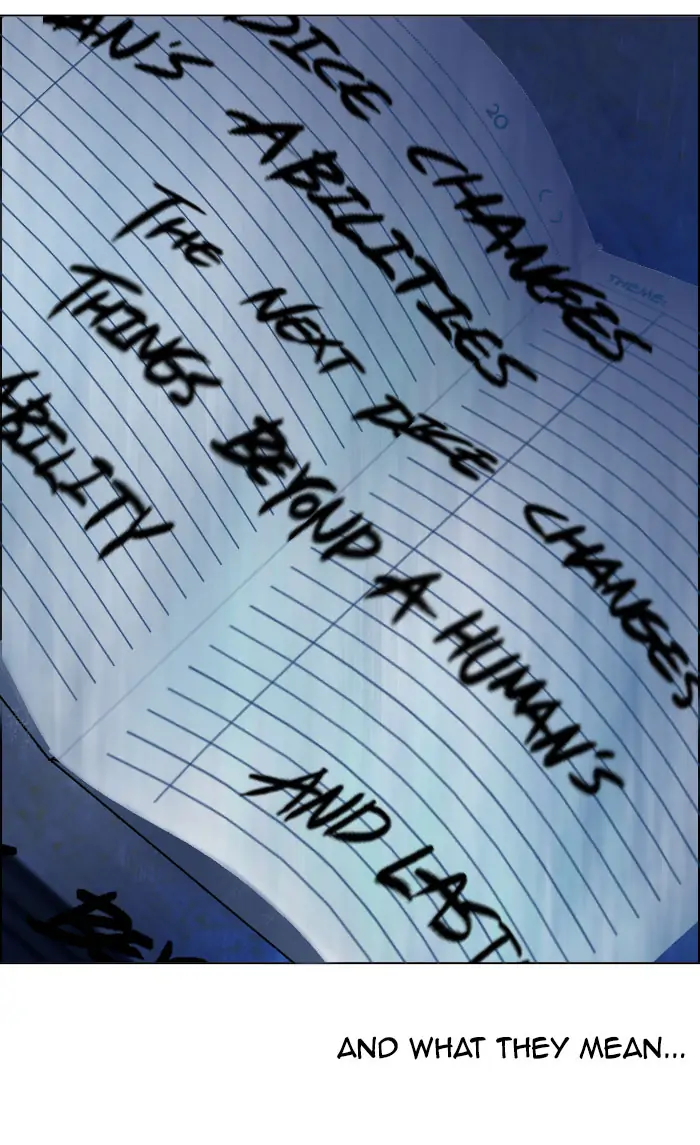 DICE CHANGES
AN'S ABILITIES
THE NEXT DICE CHANGES
THINGS BEYOND A HUMAN'S
ABILITY
AND LAST
20
( )
THEME.
AND WHAT THEY MEAN...